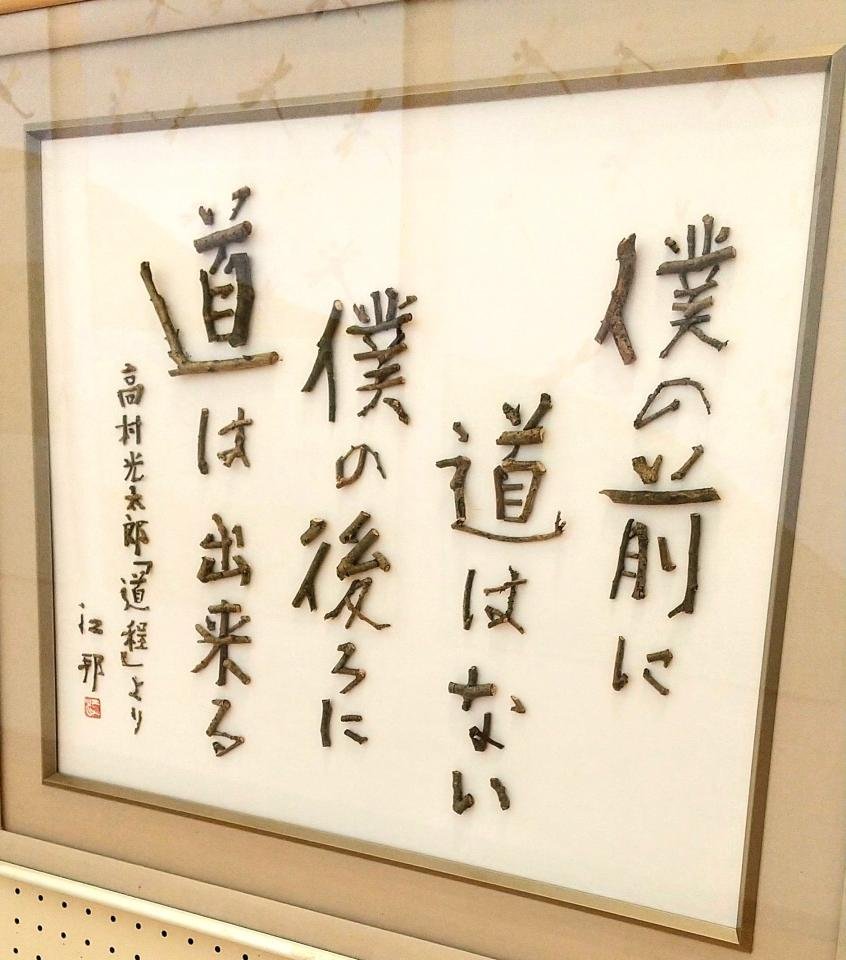 僕の前に
道はない
僕の後ろに
道は出来る
高村光太郎「道程」より
江邦